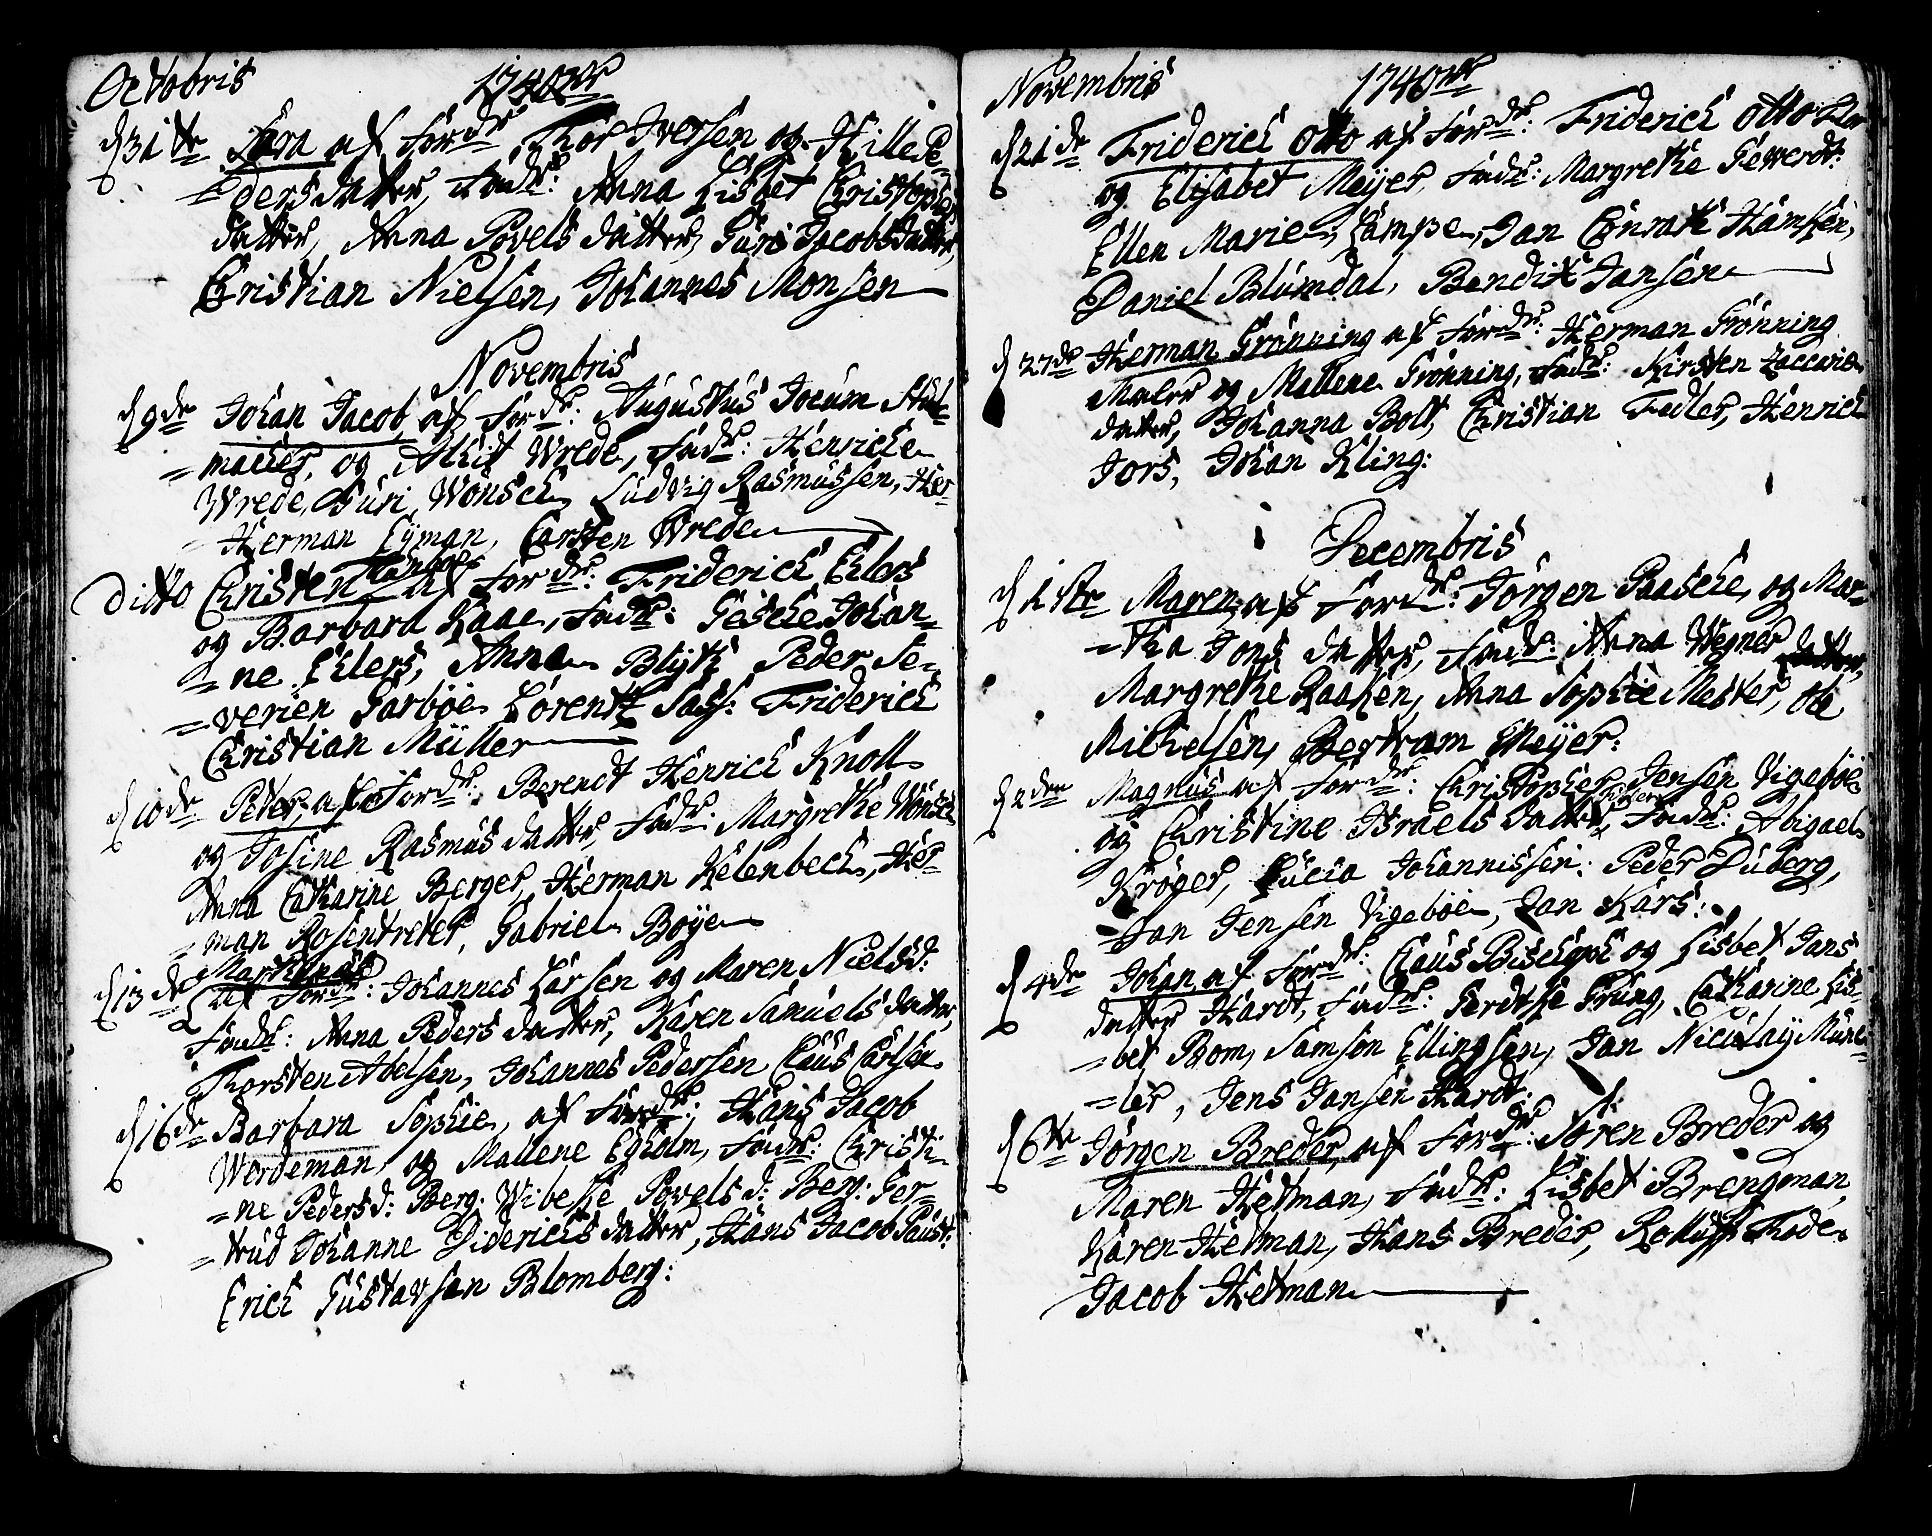 Octobris 1740
d 31te Sara af Fordr Thor Iversen og Hille Pe-
=dersdatter, Fadr: Anna Lisbet Christophers
datter, Anna Povels datter, Guri Jacobsdatter,
Christian Nielsen, Johannes Monsen
Novembris
d 9de Johan Jacob, af Fordr: Augustus Jocum Stúl-
=macher, og Wrede, Fadr: Henriche
Wrede, Guri Wonsch, Ludvig Rasmussen, Her-
=Herman Eÿman, Carsten Wrede
Ditto Christen Garboe af Fordr: Friderich Ehlers
og Barbara Kaae, Fadr: Gesche Johan-
=ne Ehlers, Anna Blyth Peder Se-
=verien Garböe Lorentz Sass: Friderich
Christian Müller
d 10de Peter, af Fordr: Berendt Henrich Knoll
og Josine Rasmus datter, Fadr: Margrethe Wonsch
Anna Catharine Berger, Herman Kelenbech, Her-
=man Rosentreter, Gabriel Boye
d 13de Marthinus af Fordr: Johannes Larsen og Maren Nielsd:
Fadr: Anna Peders datter, Karen Samuels datter,
Thorsten Abelsen, Johannes Pedersen Claus Carlsen
d 16de Barbara Sophie, af Fordr: Hans Jacob
Werdeman, og Mallene Egholm, Fadr: Christi-
=ne Pedersd: Berg: Wibeke Povelsd: Berg: Ger-
=trud Johanne Diderichs datter, Hans Jacob Paust:
Erich Gustavsen Blomberg:
Novembris 1740
d 21de Friderich Otto af Fordr: Friderich Otto
og Elisabet Meÿer, Fadr: Margrethe Gewerdt:
Ellen Marie Lampe, Jan Conrath Hamken,
Daniel Blumdal, Bendix Jansen
d 27de Herman Grönning af Fordr: Herman Grönning
Maler og Mallene Grönning, Fadr: Kirsten Zaccarie
datter, Johanna Bolt, Christian Fedler, Henrich
Jors, Johan Kling:
Decembris
d 1ste Maren, af Fordr: Jörgen Paasche, og Mar-
=tha Jons datter, Fadr: Anna Wegner
Margrethe Raaken, Anna Sophie Mester, Ole
Michelsen, Bertram Meyer:
d 2den Magnus af Fordr: Christopher Jensen Vigeböe
og Christine Israels datter Fadr: Abigael
Kröger, Lucia Johannissen: Peder Duberg,
Jan Jensen Vigeböe, Jan Kars:
d 4de Johan af Fordr: Claus Bischoph og Lisbet Jans
datter Hardt, Fadr: Gerdthe Grüng, Catharine Lis-
=bet Bom, Samson Ellingsen, Jan Niculaÿ Mün-
=ler, Jens Jansen Hardt:
d 6te Jörgen Breder, af Fordr: Sören Breder og
Maren Hetman, Fadr: Lisbet Brengman,
Karen Hetman, Hans Breder, Roluff Thode
Jacob Hetman